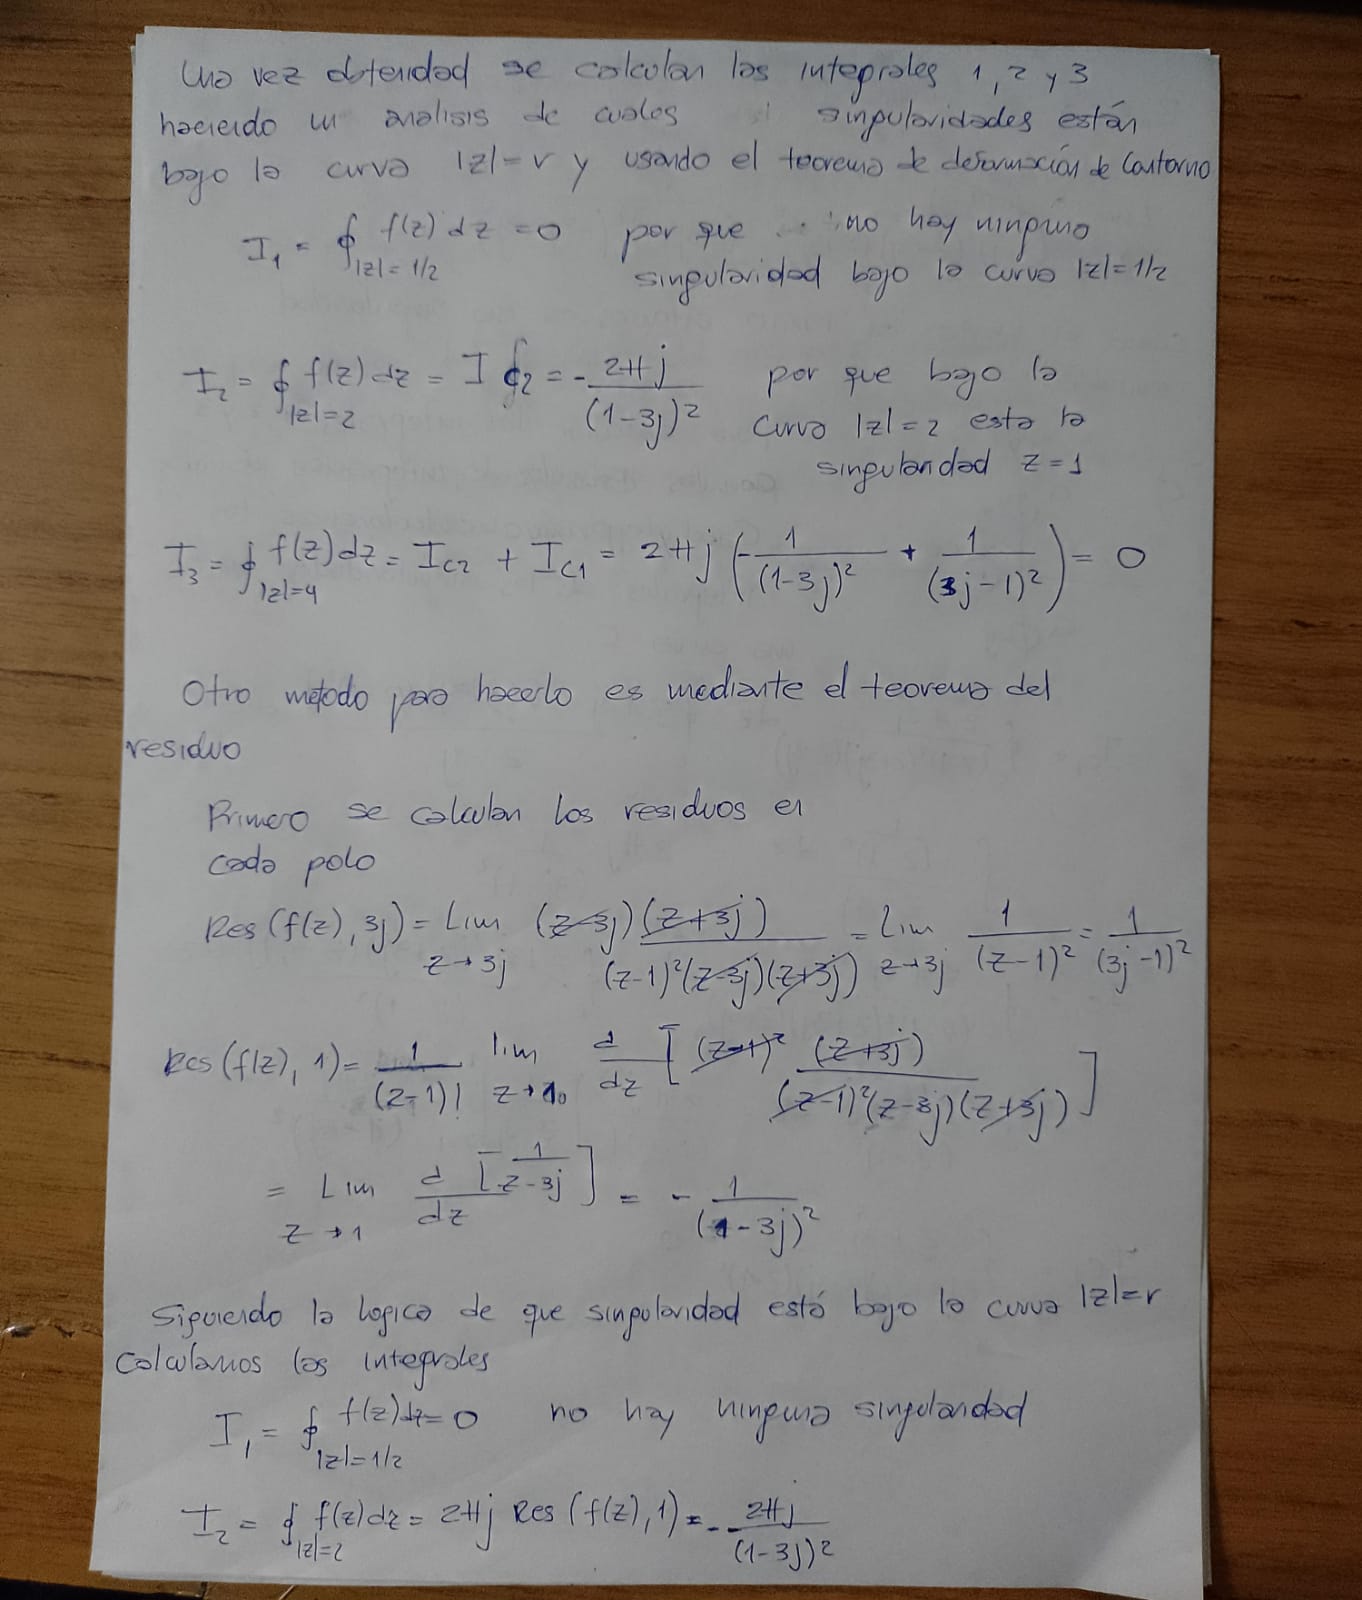 Una vez obtenidad se calculan las integrales 1, 2 y 3
haciendo un analisis de cuales singularidades están
bajo la curva |z|=r y usando el teorema de deformación de Contorno
I₁ = ∮_{|z|=1/2} f(z) dz = 0 por que no hay ninguna
singularidad bajo la curva |z|=1/2
I₂ = ∮_{|z|=2} f(z) dz = I_{C2} = - 2πj/(1-3j)² por que bajo la
curva |z|=2 esta la
singularidad z=1
I₃ = ∮_{|z|=4} f(z) dz = I_{C2} + I_{C1} = 2πj (- 1/(1-3j)² + 1/(3j-1)²) = 0
Otro método para hacerlo es mediante el teorema del
residuo
Primero se calculan los residuos en
cada polo
Res (f(z), 3j) = Lim_{z→3j} (z-3j) (z+3j)/((z-1)²(z-3j)(z+3j)) = Lim_{z→3j} 1/(z-1)² = 1/(3j-1)²
Res (f(z), 1) = 1/(2-1)! lim_{z→1} d/dz [(z-1)² (z+3j)/((z-1)²(z-3j)(z+3j))]
= Lim_{z→1} d/dz [1/(z-3j)] = - 1/(1-3j)²
Siguiendo la logica de que singularidad está bajo la curva |z|=r
Calculamos las integrales
I₁ = ∮_{|z|=1/2} f(z) dz = 0 no hay ninguna singularidad
I₂ = ∮_{|z|=2} f(z) dz = 2πj Res (f(z), 1) = - 2πj/(1-3j)²